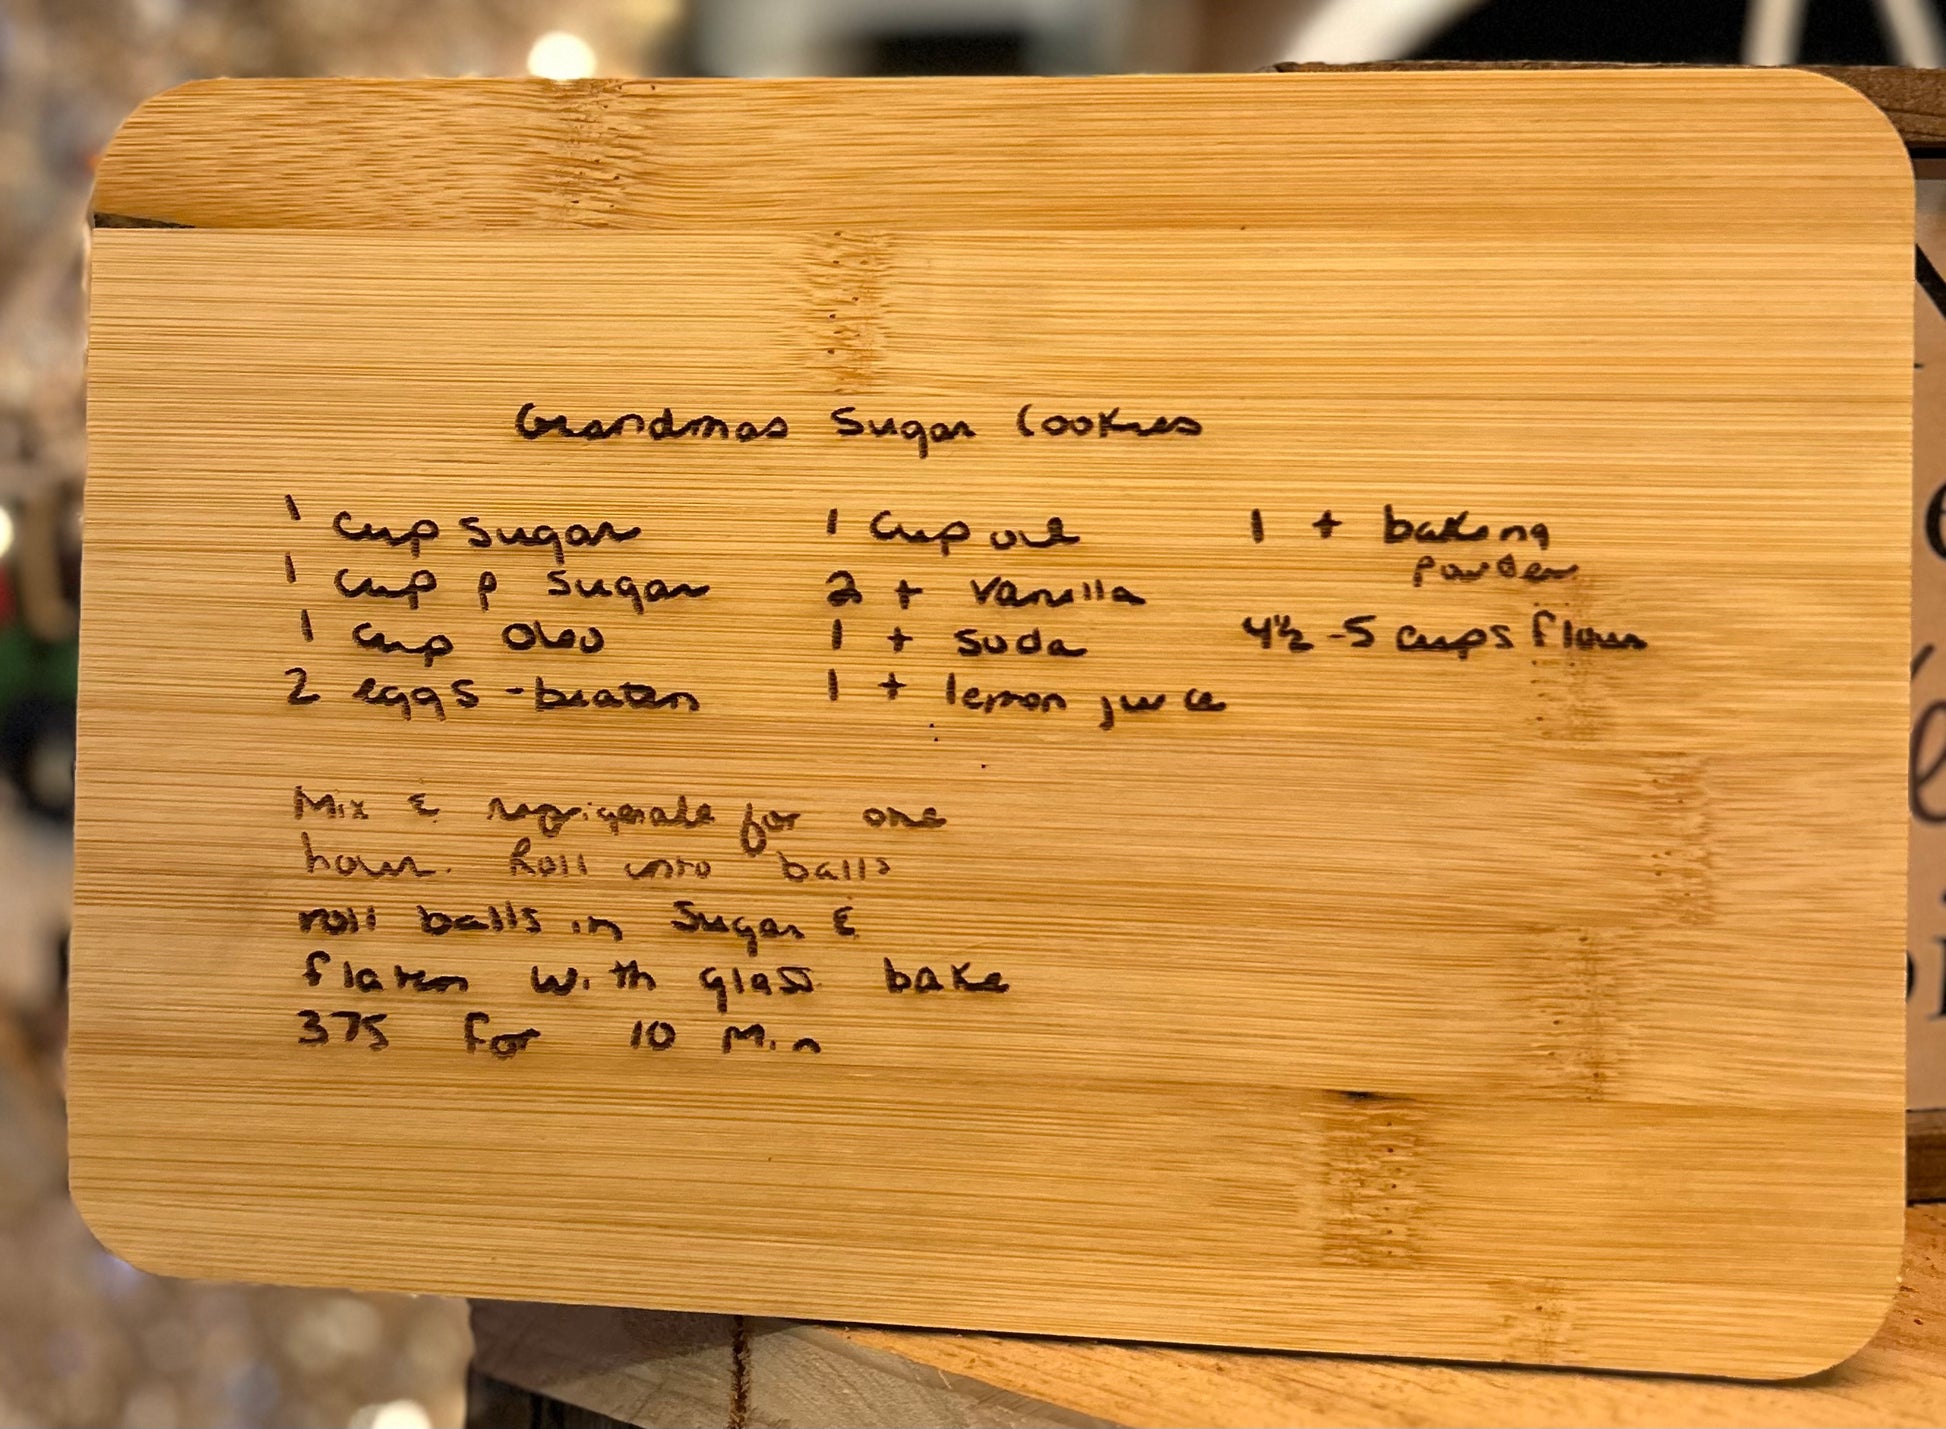 Grandmas Sugar Cookies
1 cup sugar
1 cup p sugar
1 cup oleo
2 eggs - beaten
1 cup oil
2 t vanilla
1 t soda
1 t lemon juice
1 t baking
powder
4½ - 5 cups flour
Mix & refrigerate for one
hour. Roll into balls
roll balls in sugar &
flaten with glass bake
375 for 10 Min